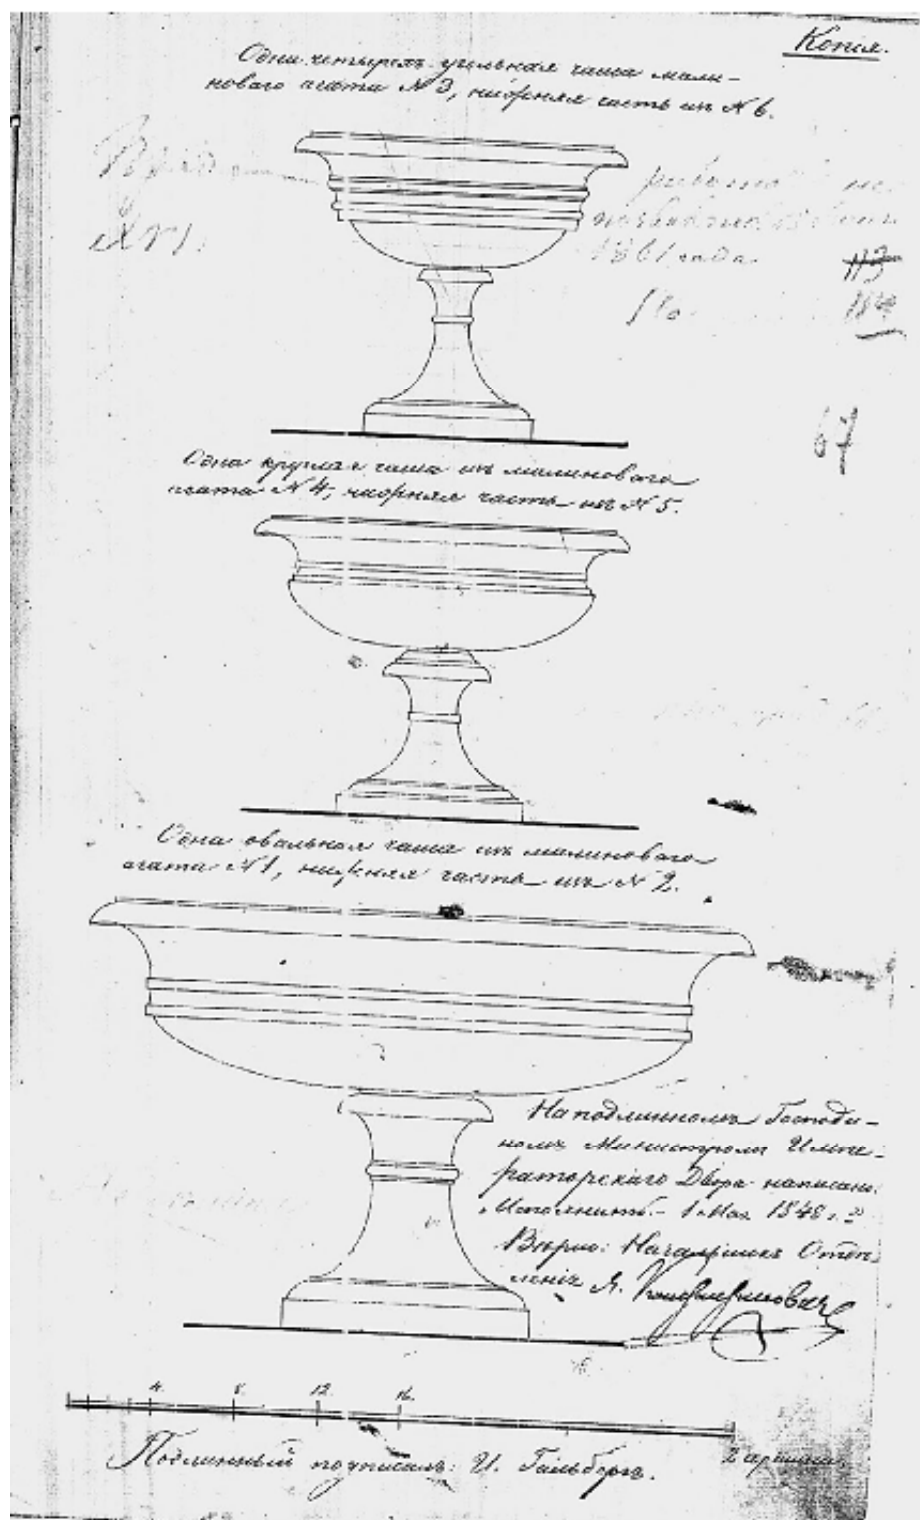 Копія.
Одна четырехъ угольная чаша мали-
новаго агата № 3, нижняя часть изъ № 6.
работа
1861 года
113
184
67
Одна круглая чаша изъ малиноваго
агата № 4, нижняя часть изъ № 5.
Одна овальная чаша изъ малиноваго
агата № 1, нижняя часть изъ № 2.
На подлинномъ Господи-
номъ Министромъ Импе-
раторскаго Двора написано:
„Исполнить.– 1 Мая 1848 г.“
Вѣрно: Начальникъ Отдѣ-
ленія Я.
4. 8. 12. 16.
2 аршина.
Подлинный подписалъ: И. Гальбергъ.